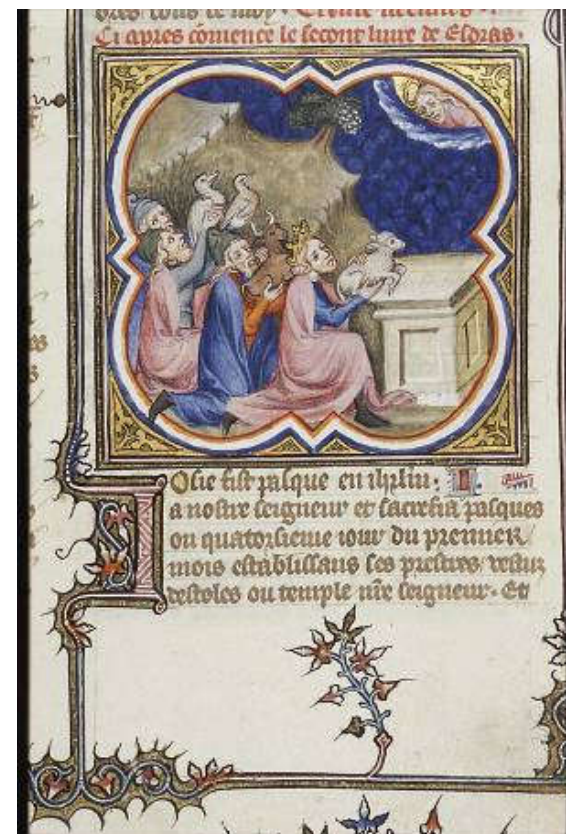 Ci apres comence le secont liure de Esdras.
Iosie fist pasque en ihrlm. I.
a nostre seigneur et sacrefia pasques
ou quatorsieme iour du premier
mois establissans ses prestres vestuz
destoles ou temple nre seigneur. Et